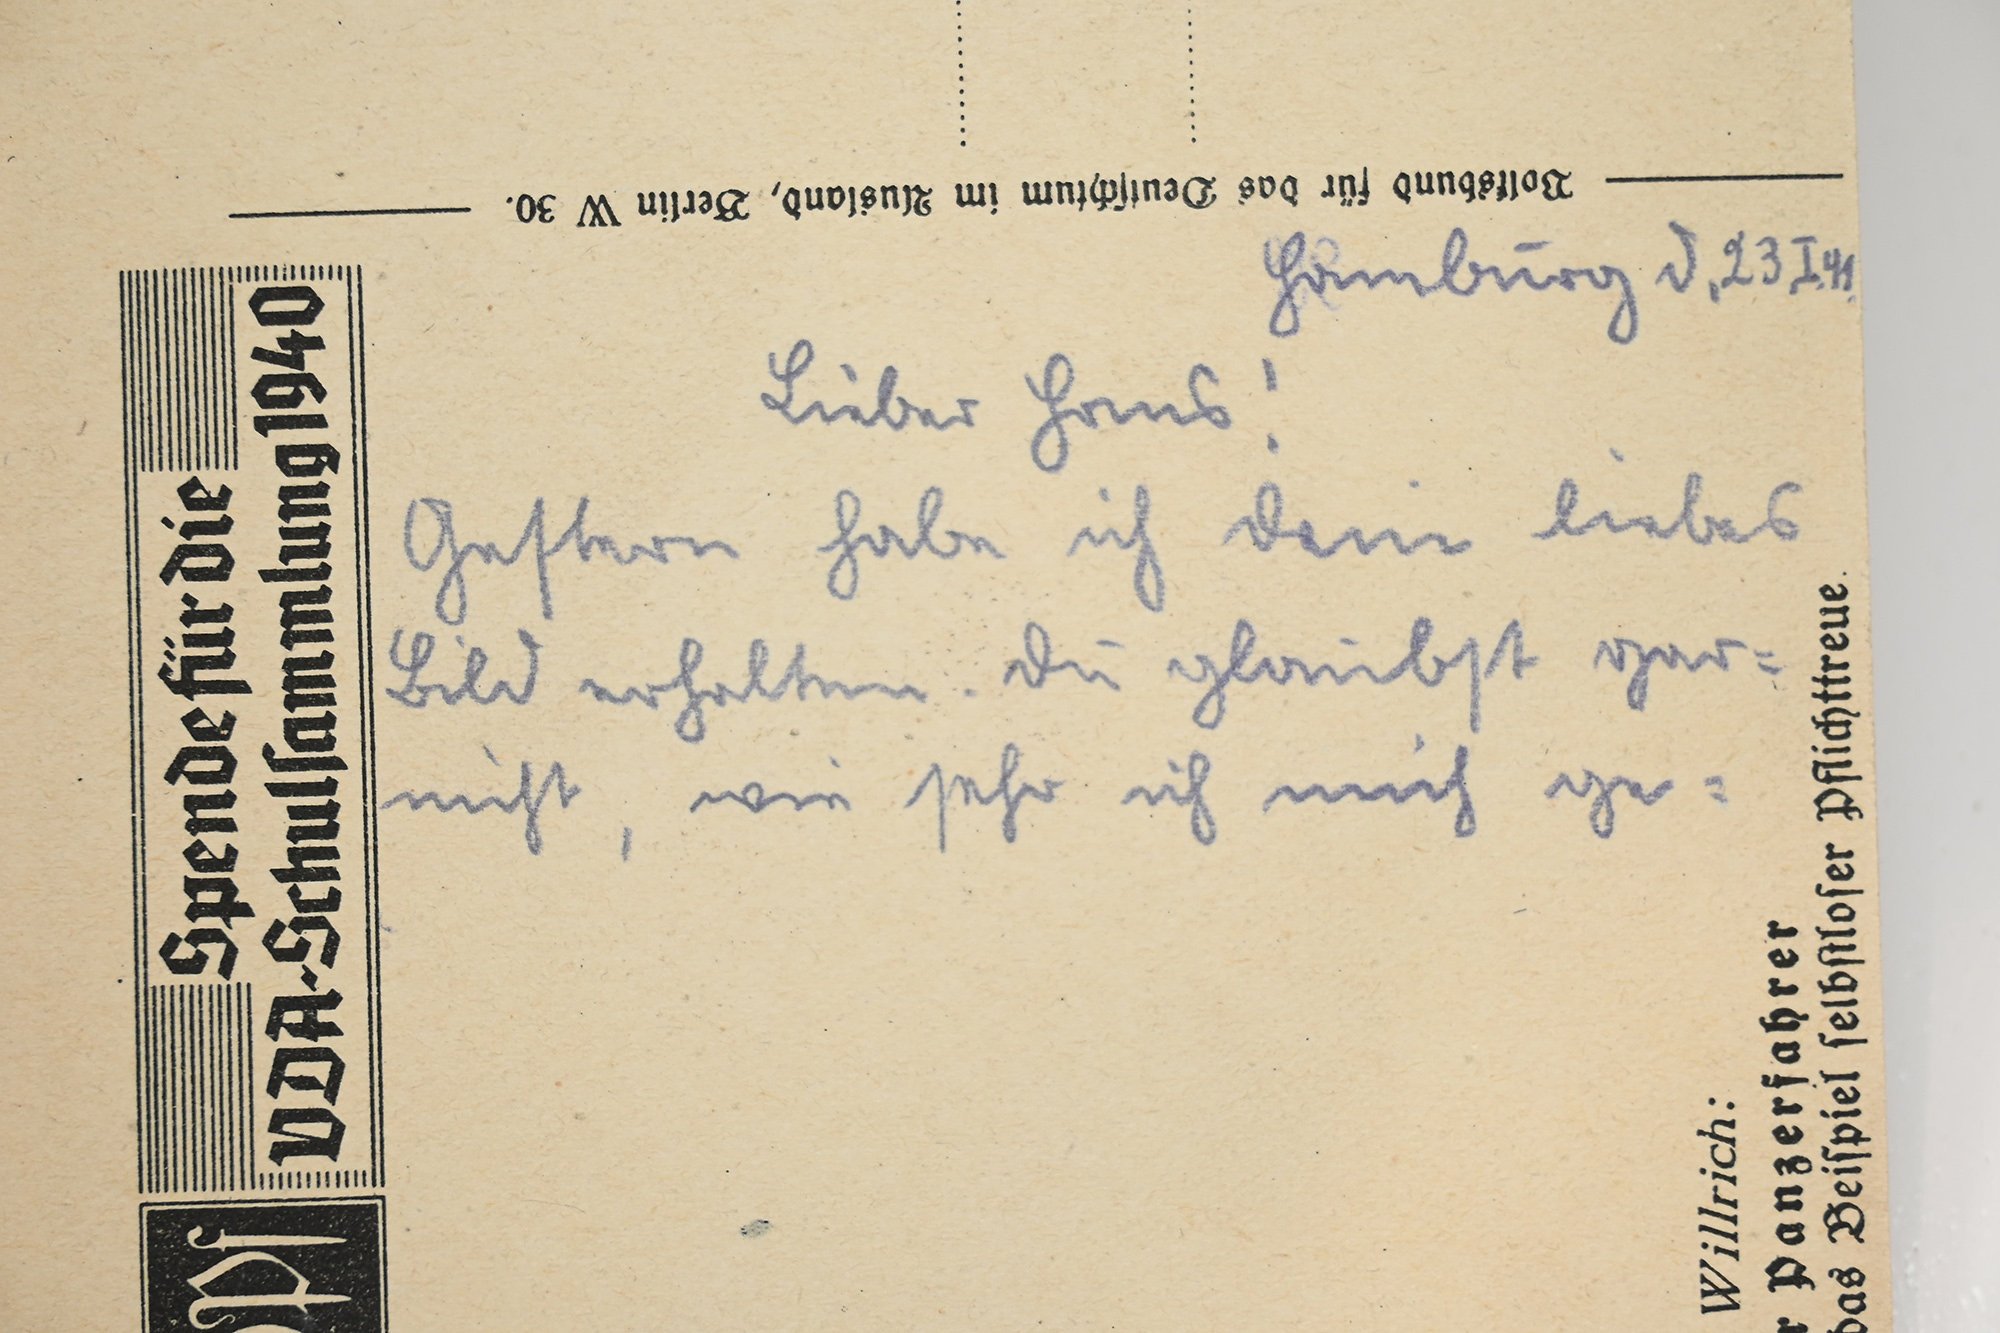 Volksbund für das Deutschtum im Ausland, Berlin W 30.
Hamburg d. 23.I.41.
Lieber Hans!
Gestern habe ich dein liebes
Bild erhalten. Du glaubst gar=
nicht, wie sehr ich mich ge=
Spende für die
VDA-Schulsammlung 1940
Pf
Willrich:
r Panzerfahrer
das Beispiel selbstloser Pflichttreue.